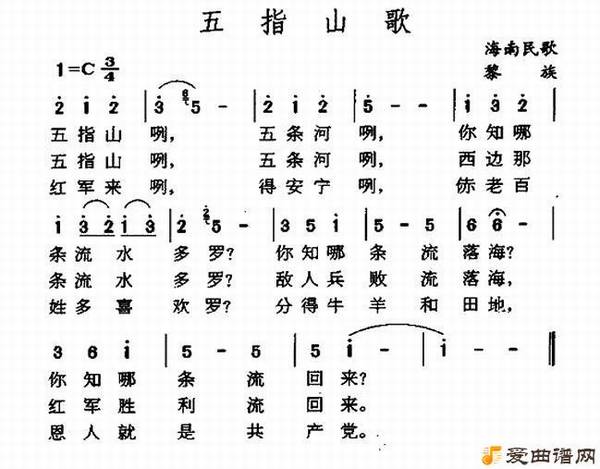 五指山歌
海南民歌
1=C 3/4
黎 族
2 i 2 | 3 6 5 - | 2 i 2 | 5 - - | i 3 2 |
五 指 山 咧， 五 条 河 咧， 你 知 哪
五 指 山 咧， 五 条 河 咧， 西 边 那
红 军 来 咧， 得 安 宁 咧， 侾 老 百
i 3 2 i 3 | 2 2 5 - | 3 5 i | 2 i 5 | 6 6 - |
条 流 水 多 罗？ 你 知 哪 条 流 落 海？
条 流 水 多 罗？ 敌 人 兵 败 流 落 海，
姓 多 喜 欢 罗？ 分 得 牛 羊 和 田 地，
3 6 i | 5 - - | 5 - 5 | i - - | i - - ‖
你 知 哪 条 流 回 来？
红 军 胜 利 流 回 来。
恩 人 就 是 共 产 党。
爱曲谱网